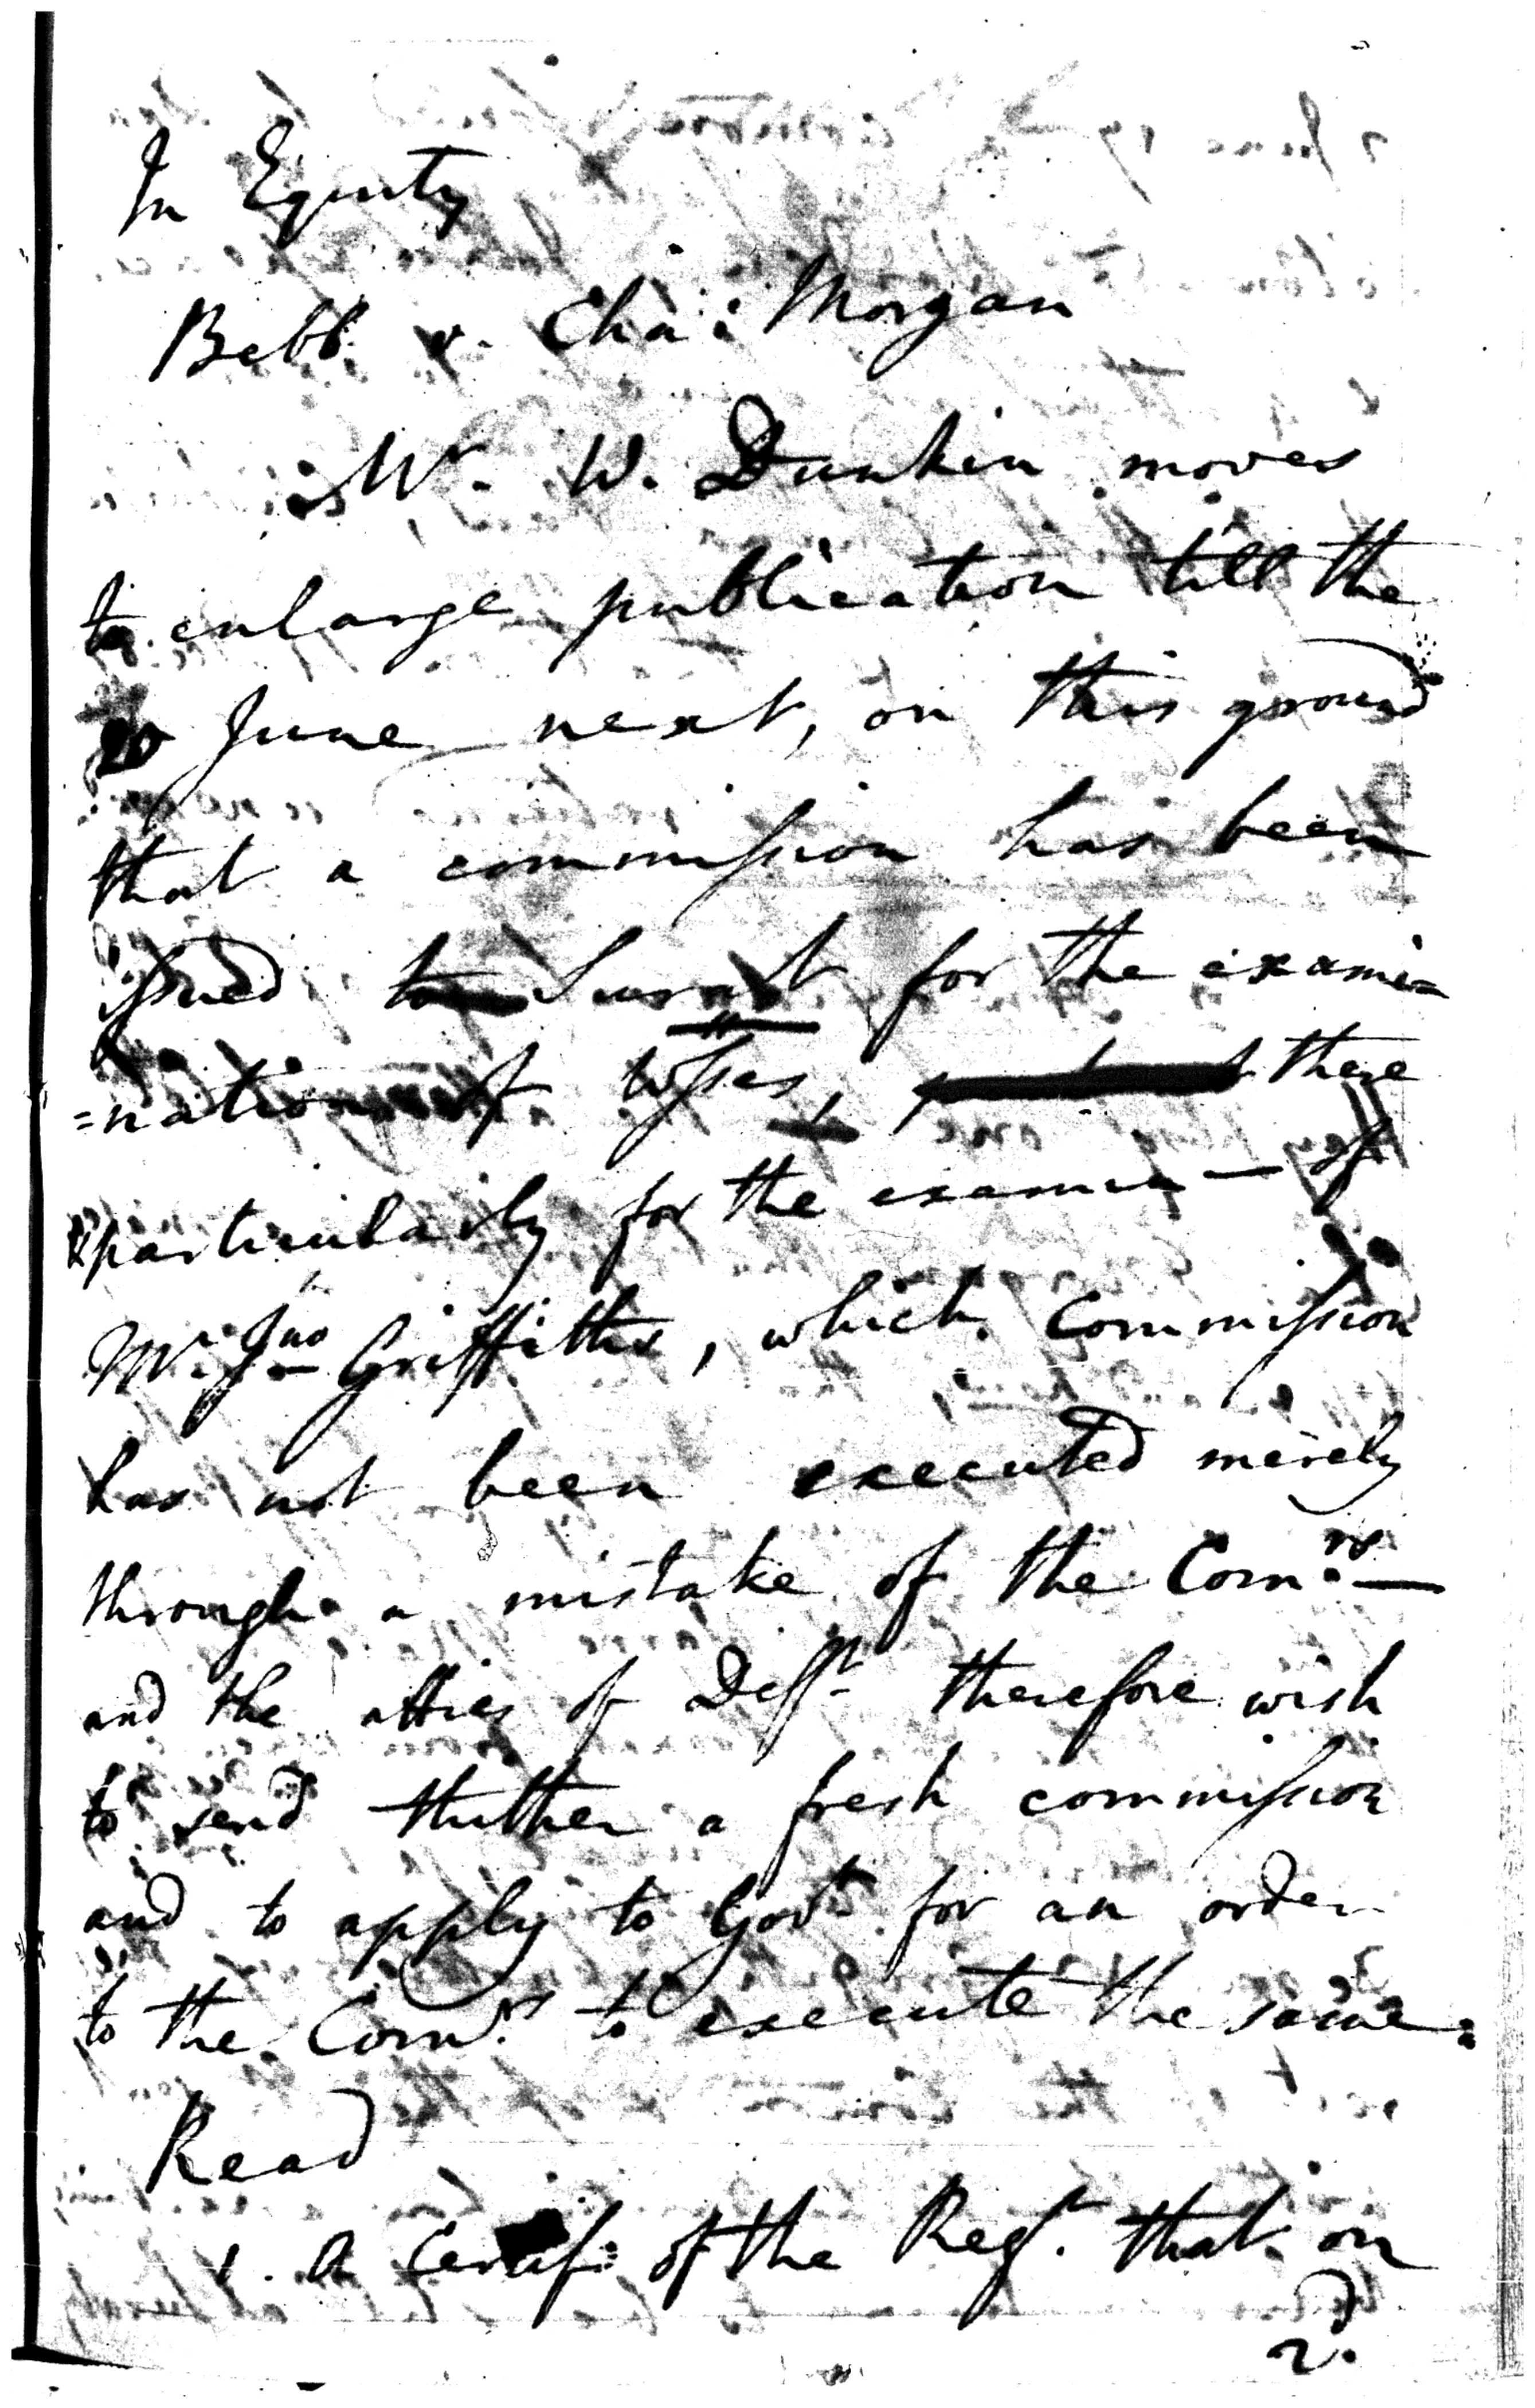 In Equity
Bebb v. Cha: Morgan
Mr. W. Dunkin moves
to enlarge publication till the
20 June next, on this ground
that a commission has been
issued to Surat for the exami=
=nation of wsses, there
& particularly for the examin— of
Mr. Jno Griffiths, which Commission
has not been executed merely
through a mistake of the Comrs.—
and the atties of Deft therefore wish
to send thither a fresh commission
and to apply to Govt for an order
to the Comrs. to execute the same.
Read
1. A Certif: of the Regr. that on
2d.